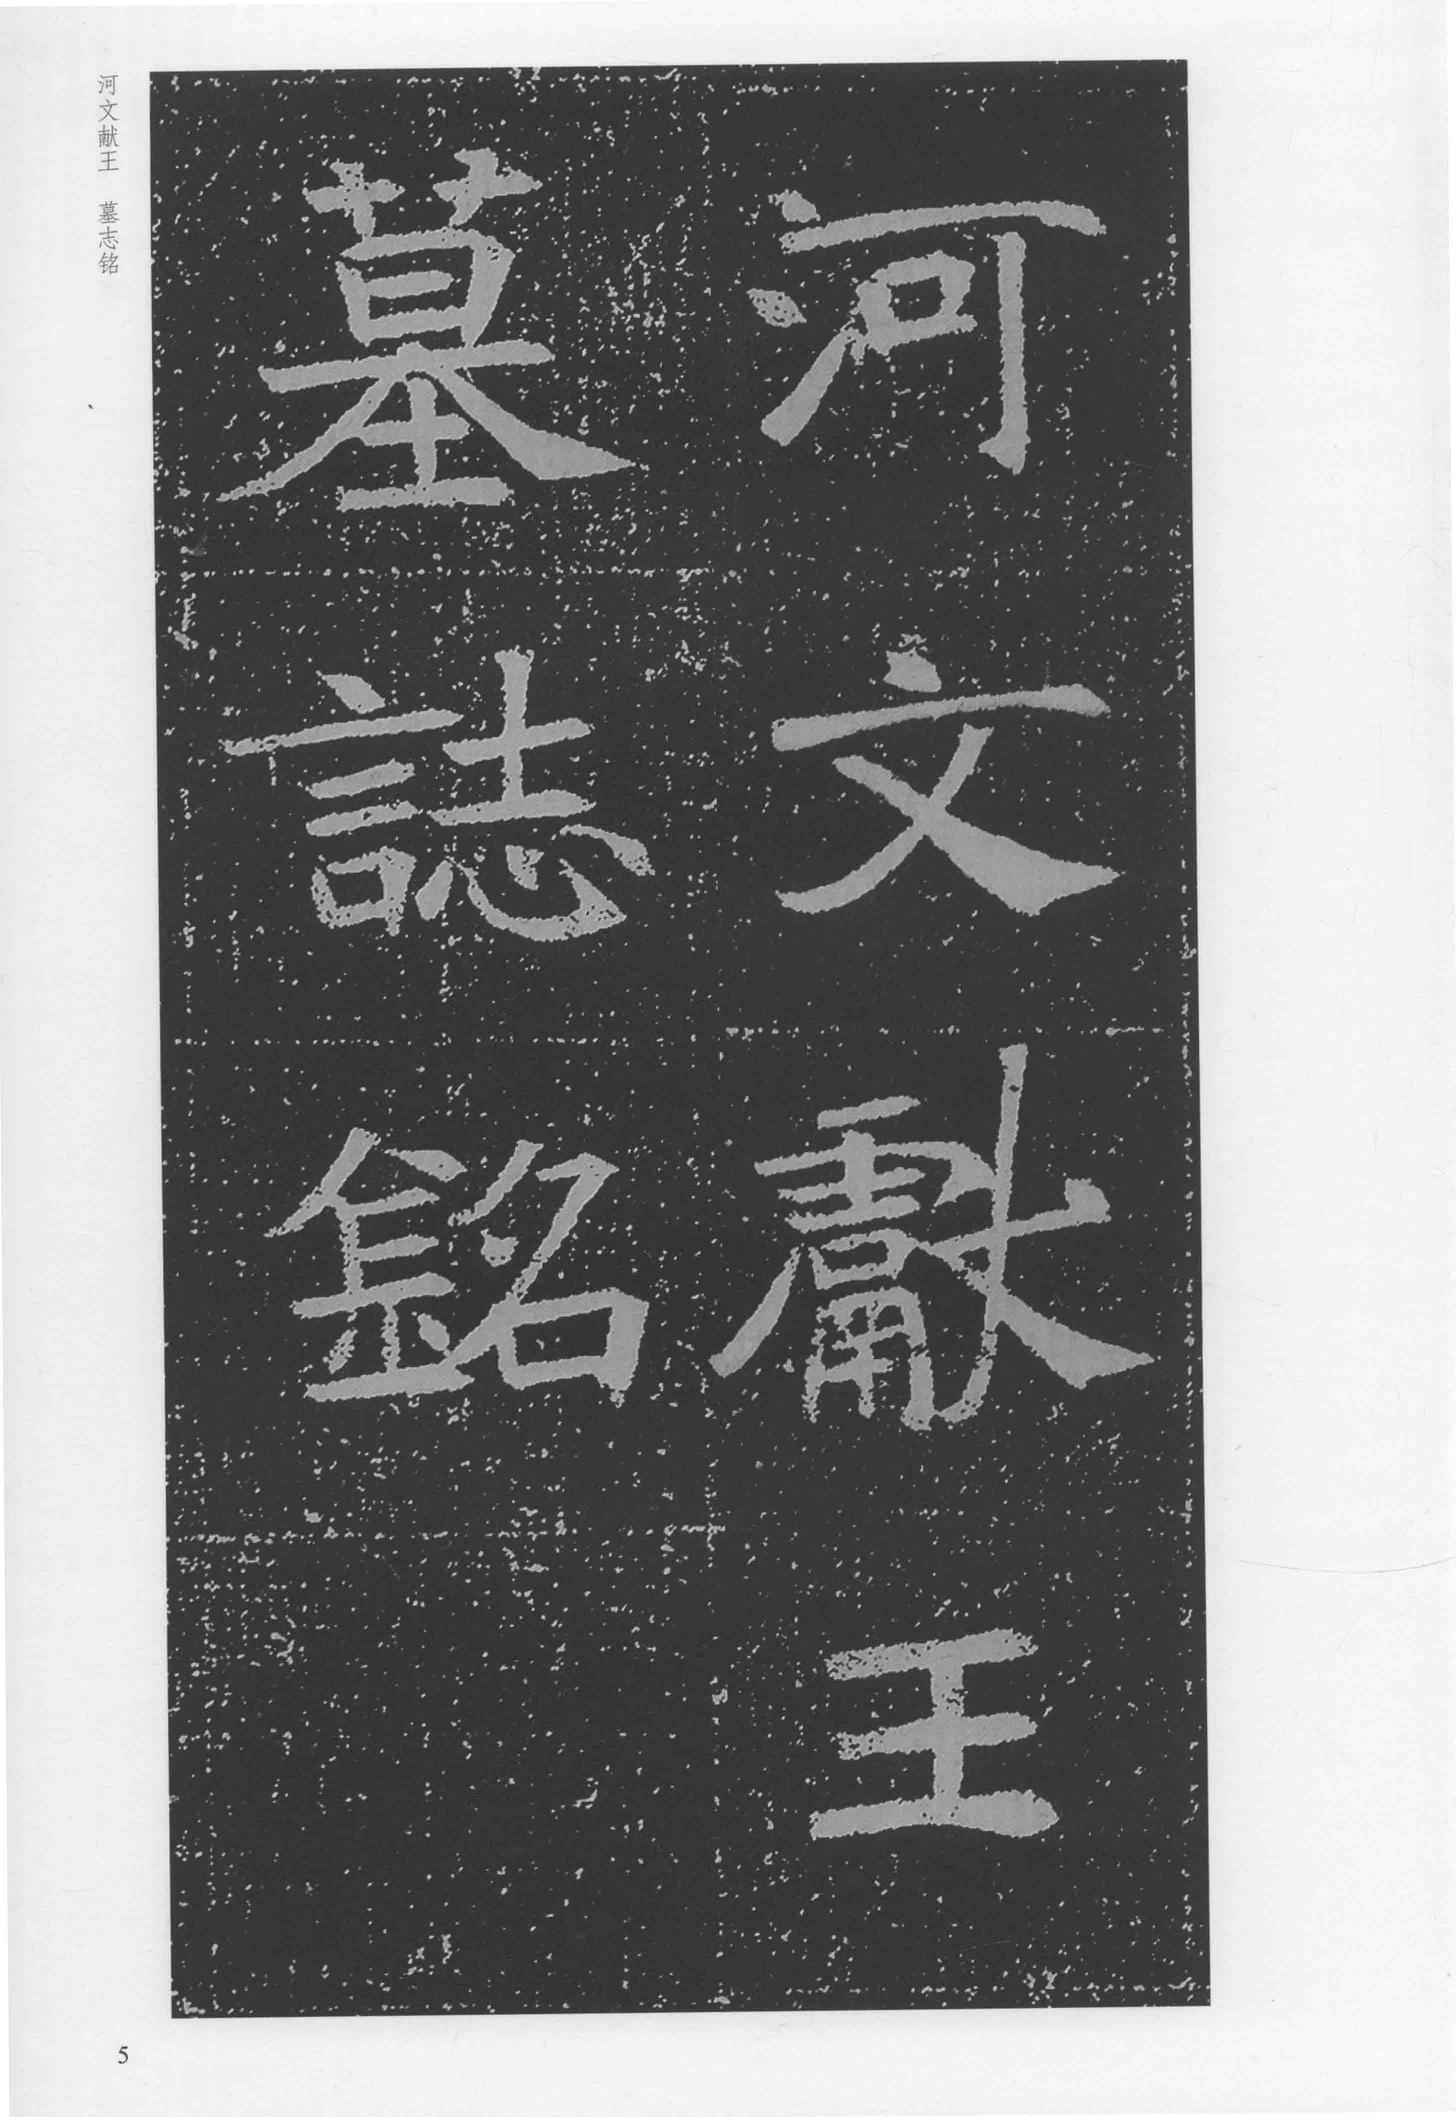 河文獻王
墓誌銘
河文献王 墓志铭
5